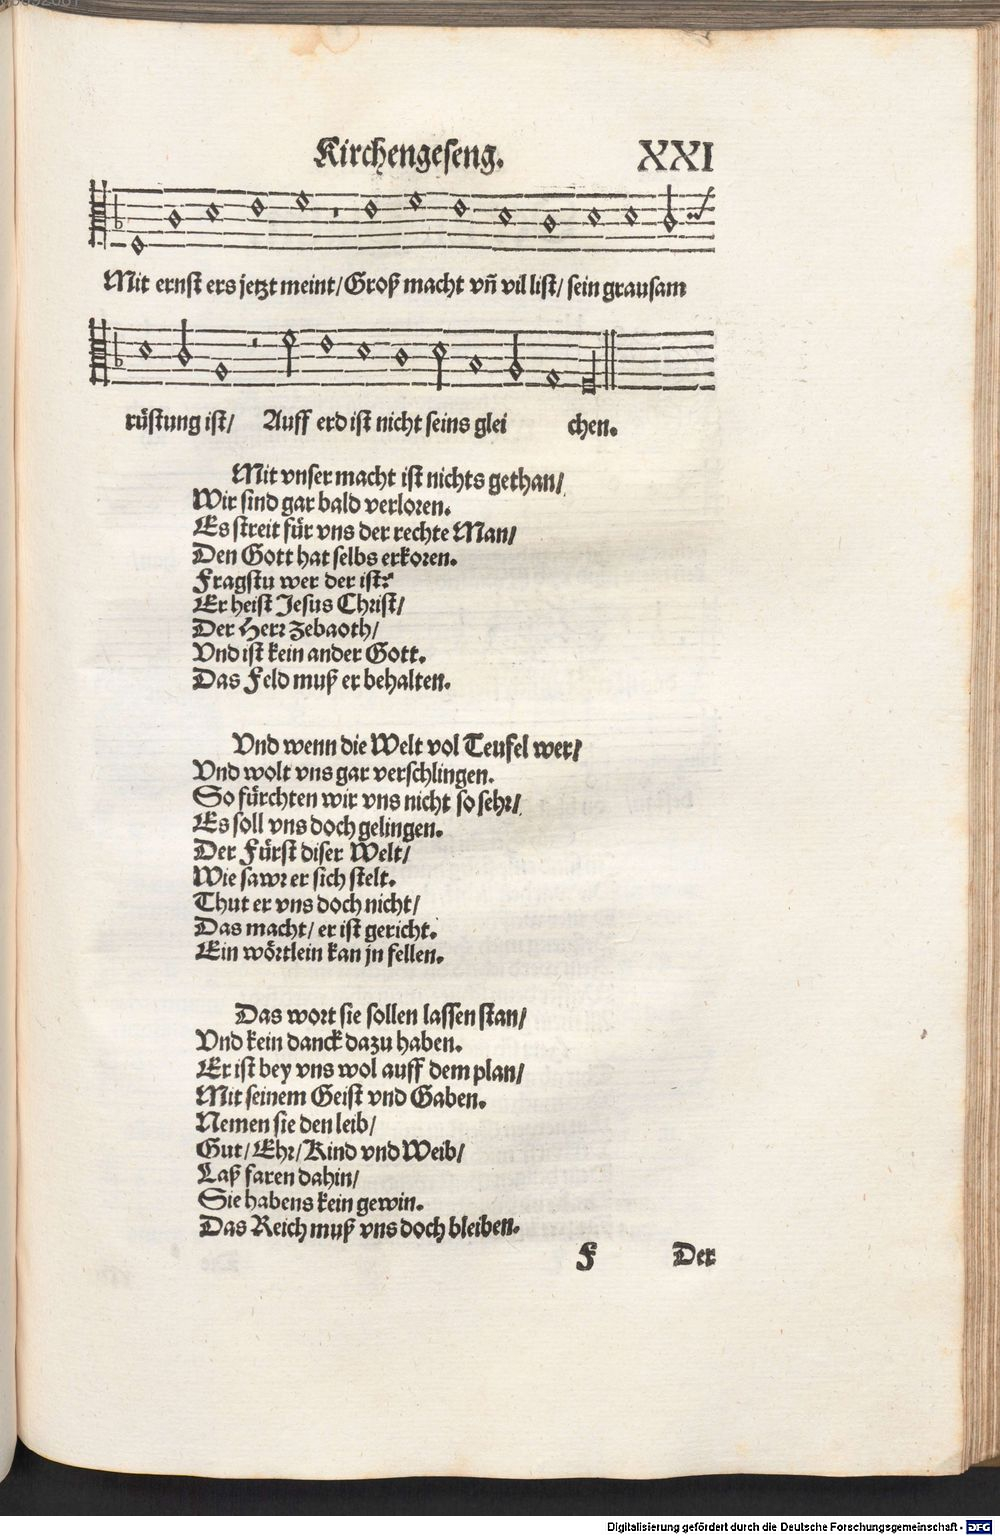 Kirchengeseng. XXI
Mit ernst ers jetzt meint/ Groß macht vñ vil list/ sein grausam
rüstung ist/ Auff erd ist nicht seins glei chen.
Mit vnser macht ist nichts gethan/
Wir sind gar bald verloren.
Es streit für vns der rechte Man/
Den Gott hat selbs erkoren.
Fragstu wer der ist?
Er heist Jesus Christ/
Der Herr Zebaoth/
Vnd ist kein ander Gott.
Das Feld muß er behalten.
Vnd wenn die Welt vol Teufel wer/
Vnd wolt vns gar verschlingen.
So fürchten wir vns nicht so sehr/
Es soll vns doch gelingen.
Der Fürst diser Welt/
Wie sawr er sich stelt.
Thut er vns doch nicht/
Das macht/ er ist gericht.
Ein wörtlein kan jn fellen.
Das wort sie sollen lassen stan/
Vnd kein danck dazu haben.
Er ist bey vns wol auff dem plan/
Mit seinem Geist vnd Gaben.
Nemen sie den leib/
Gut/ Ehr/ Kind vnd Weib/
Laß faren dahin/
Sie habens kein gewin.
Das Reich muß vns doch bleiben.
F Der
Digitalisierung gefördert durch die Deutsche Forschungsgemeinschaft - DFG